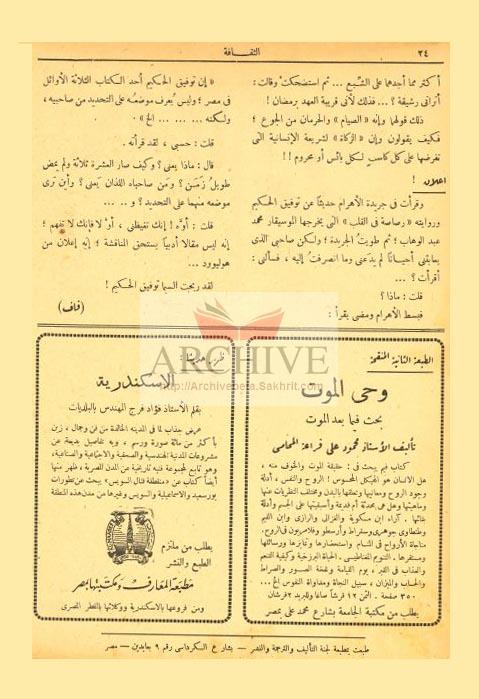 ٢٤
الثقافة
أكثر مما أجدها على الشبع ... ثم استضحكت وقالت :
أتراني رشيقة ؟ ... فذلك لأني قريبة العهد برمضان !
ذلك قولها وإنه « الصيام » والحرمان من الجوع ؛
فكيف يقولون وإن « الزكاة » لشريعة الإنسانية التي
تفرضها على كل كاسب لكل بائس أو محروم !!
اعلان !
وقرأت في جريدة الأهرام حديثاً عن توفيق الحكيم
وروايته « رصاصة في القلب » التي يخرجها الموسيقار محمد
عبد الوهاب ؛ ثم طويت الجريدة ؛ ولكن صاحبي الذي
يعابثني أحياناً لم يدعني وما انصرفت إليه ، فسألني :
أقرأت ؟ ...
قلت : ماذا ؟
فبسط الأهرام ومضى يقرأ :
« إن توفيق الحكيم أحد الكتاب الثلاثة الأوائل
في مصر ؛ وليس يعرف موضعه على التحديد من صاحبيه ،
ولكنه ... ... ... الخ » .
قلت : حسبي ، لقد قرأته .
قال : ماذا يعني ؟ وكيف صار العشرة ثلاثة ولم يمض
طويل زمن ؟ ومن صاحباه اللذان يعني ؟ وأين ترى
موضعه منهما على التحديد ؟ و ... ...
قلت : أوه ! إنك تغيظني ، أو لا فإنك لا تفهم ؛
إنه ليس مقالا أدبياً يستحق المناقشة ؛ إنه إعلان من
هوليوود ...
لقد ربحت السيما توفيق الحكيم !
(قاف)
ARCHIVE
http://Archivebeta.Sakhrit.com
الطبعة الثانية المنقحة
وحى الموت
بحث فيما بعد الموت
تأليف الأستاذ محمود على قراعة المحامى
كتاب قيم يبحث في : حقيقة الموت والخوف منه ،
هل الانسان هو الهيكل المحسوس ! الروح والنفس ، أدلة
وجود الروح ومعانيها وتعلقها بالبدن ومختلف النظريات عنها
وماهيتها وهل هي محدثة أم قديمة وأسبقيتها على الجسم وأدلة
بقائها . آراء ابن مسكويه والغزالى والرازى وابن القيم
وطنطاوى جوهرى وسقراط وأرسطو وفلامريون في الروح ،
مناجاة الأرواح
ومستقرها . التنويم المغناطيسى . الحياة البرزخية وكيفية التنعم
والعذاب في القبر ، يوم القيامة ونفخة الصور والصراط
والحساب والميزان ، سبيل النجاة ومداواة النفوس الخ ...
٣٥٠ صفحة . الثمن ١٢ قرشاً صاغا وللبريد ٢ قرشان
يطلب من مكتبة الجامعة بشارع محمد على بمصر
ظهر حديثا :
الإسكندرية
بقلم الأستاذ فؤاد فرج المهندس بالبلديات
عرض جذاب لما في المدينة الخالدة من فن وجمال ، زين
بأكثر من مائة صورة ورسم ، وبه تفاصيل بديعة عن
مشروعات المدنية الهندسية والصحفية والاجتماعية والصناعية ،
وهو تابع لمجموعة فنية تاريخية عن المدن المصرية ، ظهر منها
أيضاً كتاب عن « منطقة قنال السويس » يبحث عن تطورات
بورسعيد والاسماعيلية والسويس وغيرها من مدن هذه المنطقة
يطلب من ملتزم
الطبع والنشر
مطبعة المعارف ومكتبتها بمصر
ومن فروعها بالاسكندرية ووكلائها بالقطر المصرى
طبعت بمطبعة لجنة التأليف والترجمة والنشر — بشارع السكرداسى رقم ٩ بعابدين — مصر